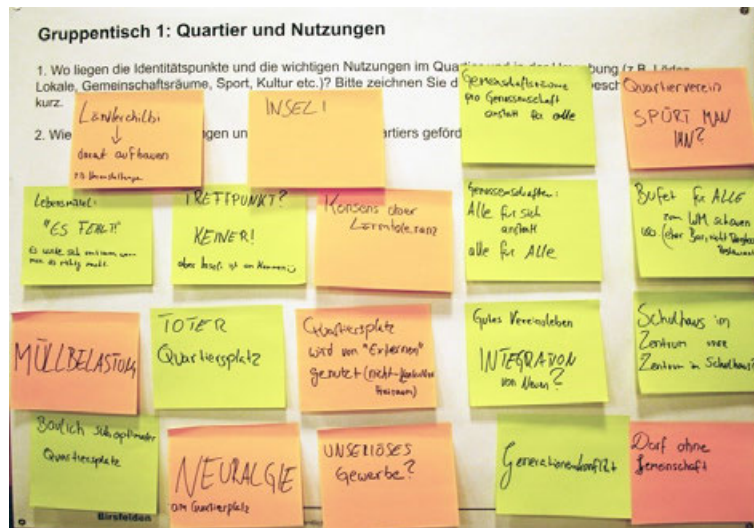 Gruppentisch 1: Quartier und Nutzungen
1. Wo liegen die Identitätspunkte und die wichtigen Nutzungen im
Lokale, Gemeinschaftsräume, Sport, Kultur etc.)? Bitte zeichnen Sie
kurz.
2. Wie
Ländlerchilbi
↓
darauf aufbauen
INSELI
Gemeinschaftsräume
pro Genossenschaft
anstatt für alle
Quartierverein
SPÜRT MAN
IHN?
Lebensmittel:
"ES FEHLT!"
TREFFPUNKT?
KEINER!
aber Inseli ist am Kommen
Konsens über
Lärmtoleranz
Genossenschaften:
Alle für sich
anstatt
alle für Alle
Büfet für ALLE
zum WM schauen
MÜLLBELASTUNG
TOTER
Quartiersplatz
Quartiersplatz
wird von "Externen"
genutzt (nicht
Gutes Vereinsleben
INTEGRATION
von Neuen?
Schulhaus im
Zentrum
Zentrum im Schulhaus?
Baulich suboptimaler
Quartiersplatz
NEURALGIE
am Quartierplatz
UNSERIÖSES
Gewerbe?
Generationenkonflikt
Dorf ohne
Gemeinschaft
Birsfelden